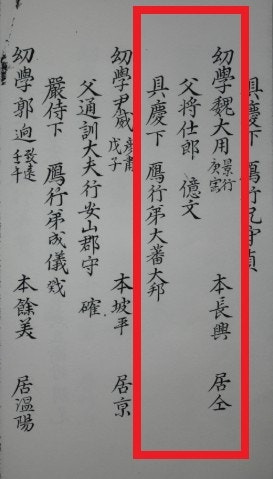 具慶下 鴈行兄守貞
幼學魏大用 景行 庚寅 本長興 居仝
父将仕郎 億文
具慶下 鴈行弟大蕃大邦
幼學尹威 彦肅 戊子 本坡平 居京
父通訓大夫行安山郡守 確
嚴侍下 鴈行弟成儀
幼學郭逈 致遠 壬午 本餘美 居溫陽